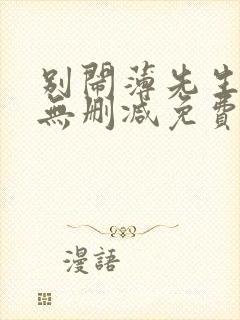 別鬧薄先生
無刪減免費
漫語